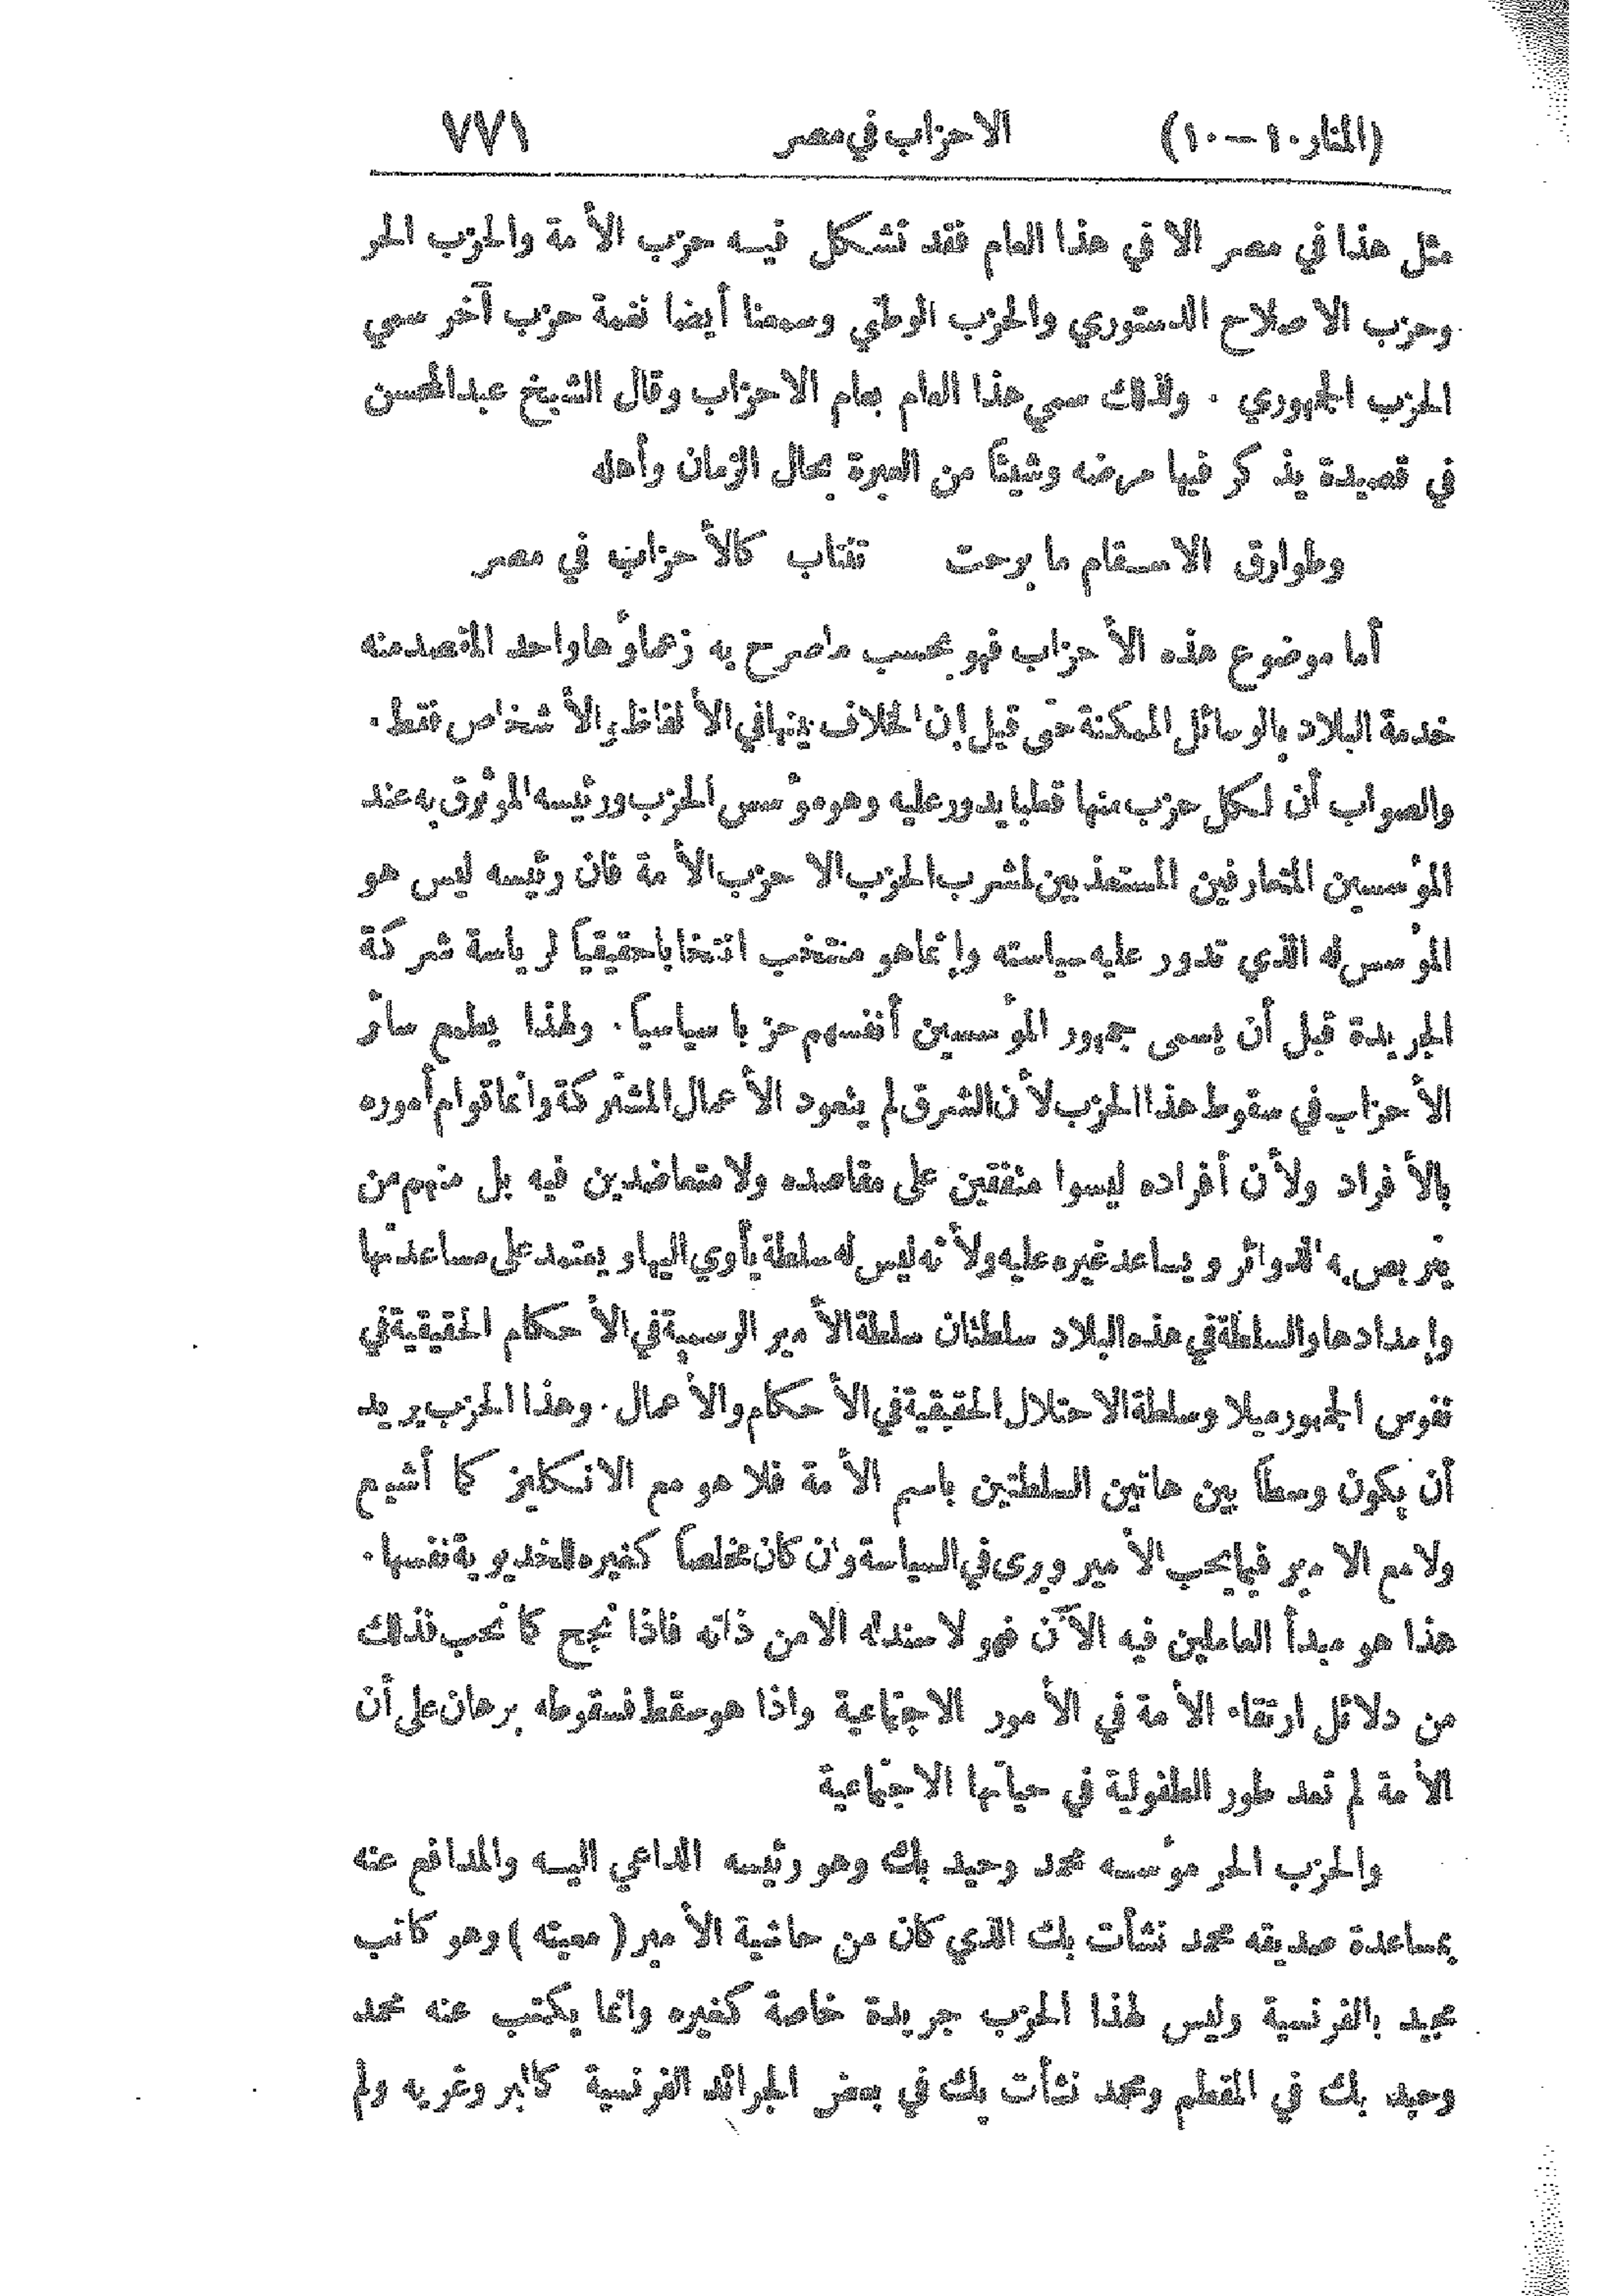 (المنار ١٠ — ١٠) الاحزاب في مصر ٧٧١
مثل هذا في مصر الا في هذا العام فقد تشكل فيه حزب الأمة والحزب الحر
وحزب الاصلاح الدستوري والحزب الوطني وسمعنا أيضا نغمة حزب آخر سمي
الحزب الجمهوري . ولذلك سمي هذا العام بعام الاحزاب وقال الشيخ عبد المحسن
في قصيدة يذكر فيها مرضه وشيئاً من العبرة بحال الزمان وأهله
وطوارق الاسقام ما برحت تنتاب كالأحزاب في مصر
أما موضوع هذه الأحزاب فهو بحسب ماصرح به زعماؤها واحد المقصد منه
خدمة البلاد بالوسائل الممكنة حتى قيل إن الخلاف بينها في الألفاظ والأشخاص فقط .
والصواب أن لكل حزب منها قطبا يدور عليه وهو مؤسس الحزب ورئيسه الموثوق به عند
المؤسسين المتعارفين المستعذبين لمشرب الحزب الا حزب الأمة فان رئيسه ليس هو
المؤسس له الذي تدور عليه سياسته وإنما هو منتخب انتخابا حقيقياً لرياسة شركة
الجريدة قبل أن يسمى جمهور المؤسسين أنفسهم حزبا سياسياً . ولهذا يطمع سائر
الأحزاب في سقوط هذا الحزب لأن الشرق لم يتعود الأعمال المشتركة وانما قوام أموره
بالأفراد ولأن أفراده ليسوا متفقين على مقاصده ولا متعاضدين فيه بل منهم من
يتربص به الدوائر ويساعد غيره عليه ولأنه ليس له سلطة يأوي اليها ويعتمد على مساعدتها
وإمدادها والسلطة في هذه البلاد سلطتان سلطة الأمير الرسمية في الأحكام الحقيقية في
نفوس الجمهور ميلا وسلطة الاحتلال الحقيقية في الأحكام والأعمال . وهذا الحزب يريد
أن يكون وسطاً بين هاتين السلطتين باسم الأمة فلا هو مع الانكليز كما أشيع
ولا مع الامير فيما يحب الأمير ويرى في السياسة وان كان مخلصاً كغيره للخديوية نفسها .
هذا هو مبدأ العاملين فيه الآن فهو لا سند له الا من ذاته فاذا نجح كما نحب فذلك
من دلائل ارتقاء الأمة في الأمور الاجتماعية واذا هو سقط فسقوطه برهان على أن
الأمة لم تعد طور الطفولية في حياتها الاجتماعية
والحزب الحر مؤسسه محمد وحيد بك وهو رئيسه الداعي اليه والمدافع عنه
بمساعدة صديقه محمد نشأت بك الذي كان من حاشية الأمير ( معيته ) وهو كاتب
مجيد بالفرنسية وليس لهذا الحزب جريدة خاصة كغيره وانما يكتب عنه محمد
وحيد بك في المقطم ومحمد نشأت بك في بعض الجرائد الفرنسية كالبروغريه ولم